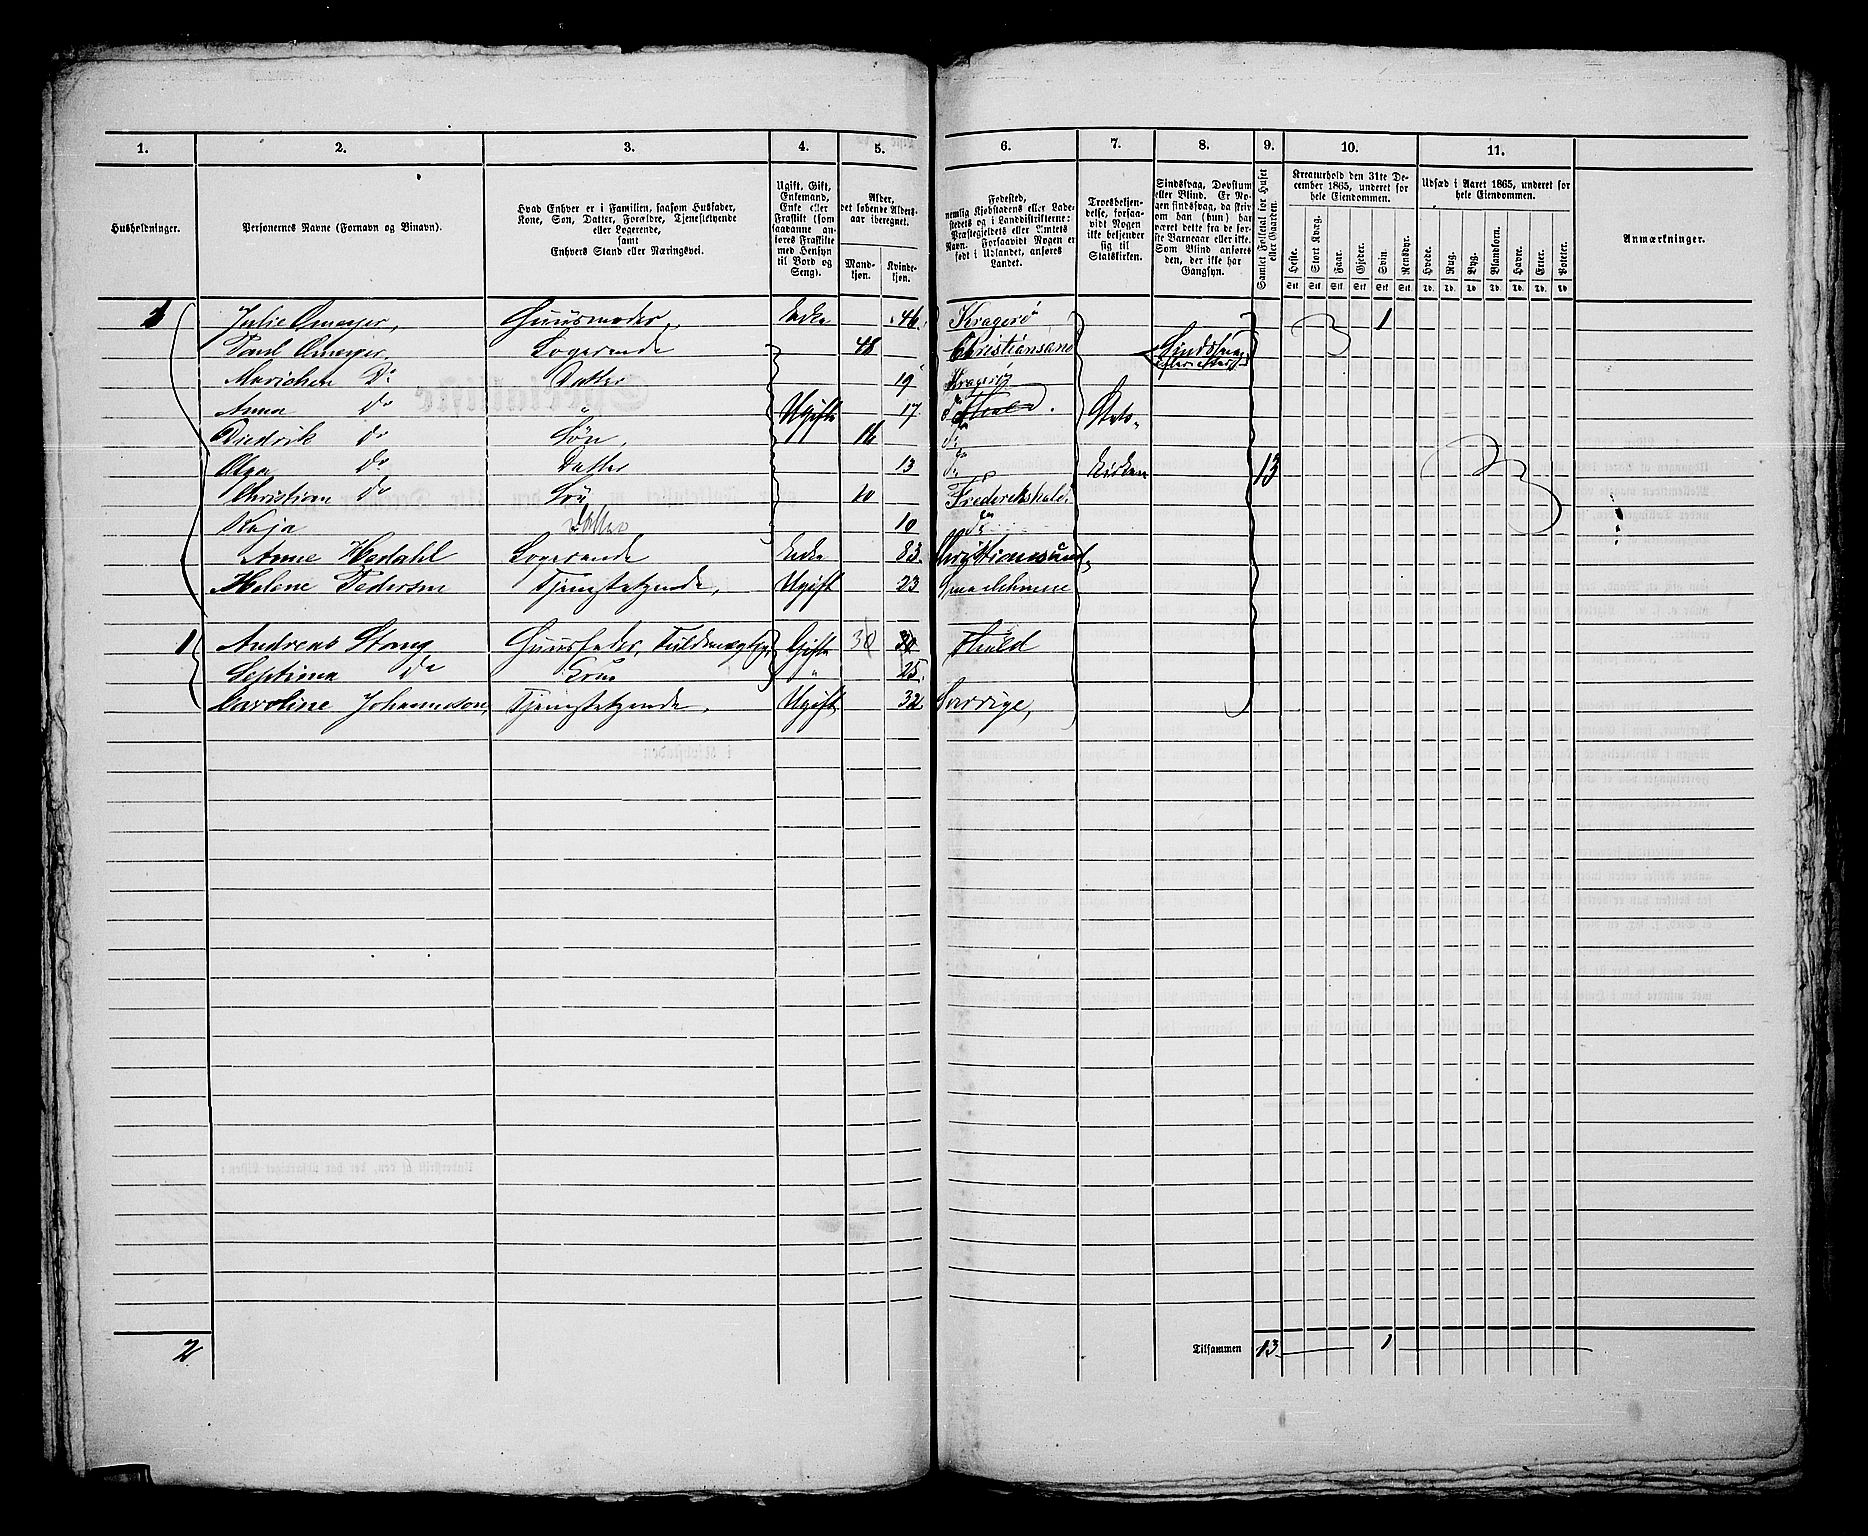 1. 2. 3. 4. 5. 6. 7. 8. 9. 10. 11.
Husholdninger.
Personernes Navne (Fornavn og Binavn).
Hvad Enhver er i Familien, saasom Husfader,
Kone, Søn, Datter, Forældre, Tjenestetyende
eller Logerende,
samt
Enhvers Stand eller Næringsvei.
Ugift, Gift,
Enkemand,
Enke eller
Fraskilt (som
saadanne an-
føres Fraskilte
med Hensyn
til Bord og
Seng).
Alder,
det løbende Alders-
aar iberegnet.
Mand-
kjøn.
Kvinde-
kjøn.
Fødested,
nemlig Kjøbstadens eller Lade-
stedets og i Landdistrikterne:
Præstegjeldets eller Amtets
Navn. Forsaavidt Nogen er
født i Udlandet, anføres
Landet.
Troesbekjen-
delse, forsaa-
vidt Nogen
ikke bekjender
sig til
Statskirken.
Sindssvag, Døvstum
eller Blind. Er No-
gen sindssvag, da skriv
om han (hun) har
været dette fra de før-
ste Barneaar eller ikke.
Som Blind anføres
den, der ikke har
Gangsyn.
Samlet Folketal for Huset
eller Gaarden.
Kreaturhold den 31te De-
cember 1865, underet for
hele Eiendommen.
Heste. Stort Kvæg. Faar. Gjeder. Svin. Rensdyr.
Stk Stk Stk Stk Stk Stk
Udsæd i Aaret 1865, underet for
hele Eiendommen.
Hvede. Rug. Byg. Blandkorn. Havre. Erter. Poteter.
Td. Td. Td. Td. Td. Td. Td.
Anmærkninger.
1 Julie Omeyer, Huusmoder, Enke 46. Kragerø 1
Paul Omeyer, Logerende 48 Christiansand
Marichen Do Datter 19 Kragerø
Anna do " Ugifte 17 do Stats-
Diedrik do Søn, 16 do
Olga do Datter 13 do kirken 13
Christian do Søn 10 Frederikshald
Kaja Datter 10 do
Anne Hordahl Logerende Enke 83. Christiansund,
Helene Pedersen Tjenestetyende, Ugift 23
1 Andreas Stang Huusfader, Fuldmægtig Gift 30 Fhald
Septima do Kone " 25.
Caroline Johannesson, Tjenestetyende, Ugift 32. Sverige,
2 Tilsammen 13 1